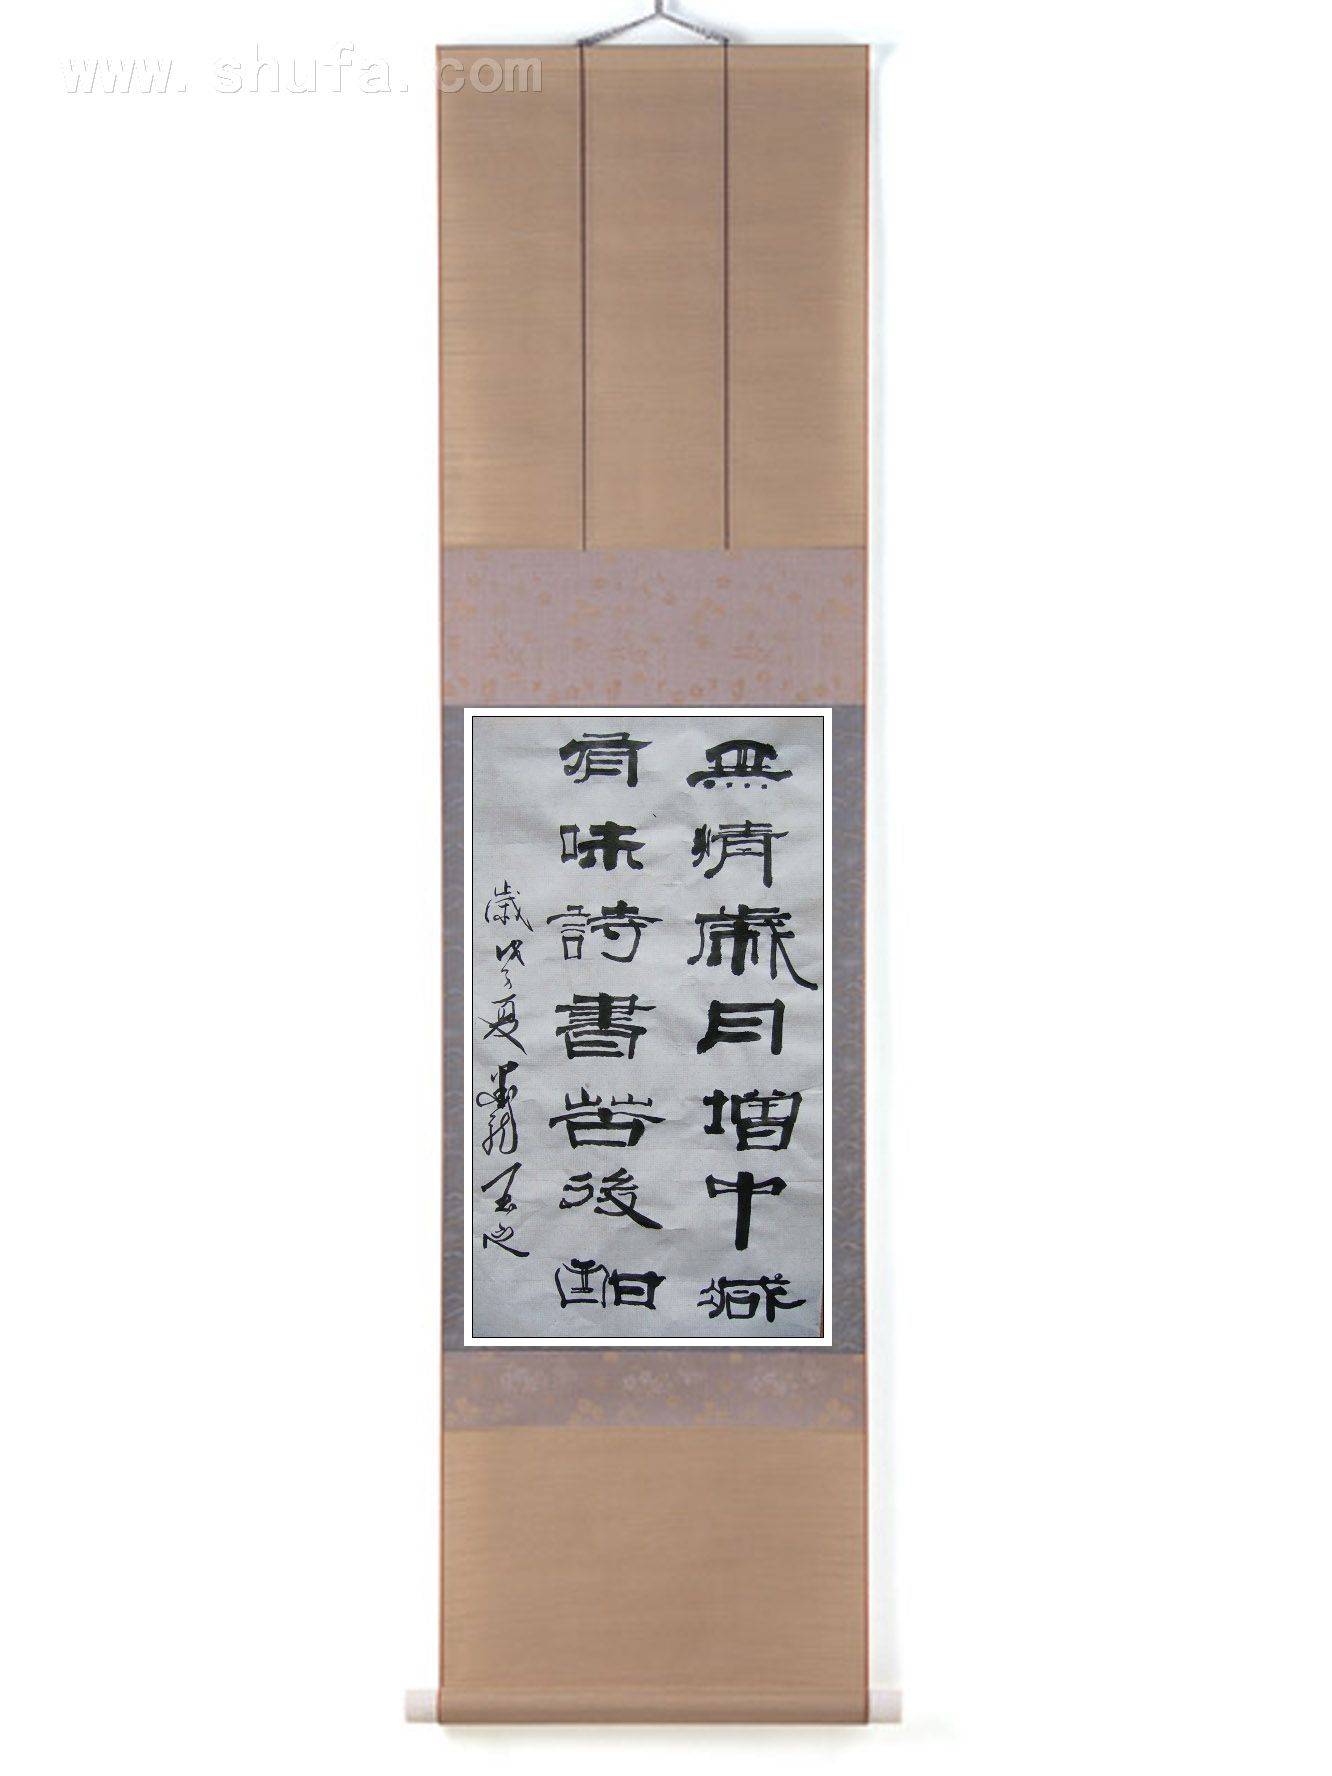 www.shufa.com
無情歲月增中減
有味詩書苦後甜
歲戊子夏